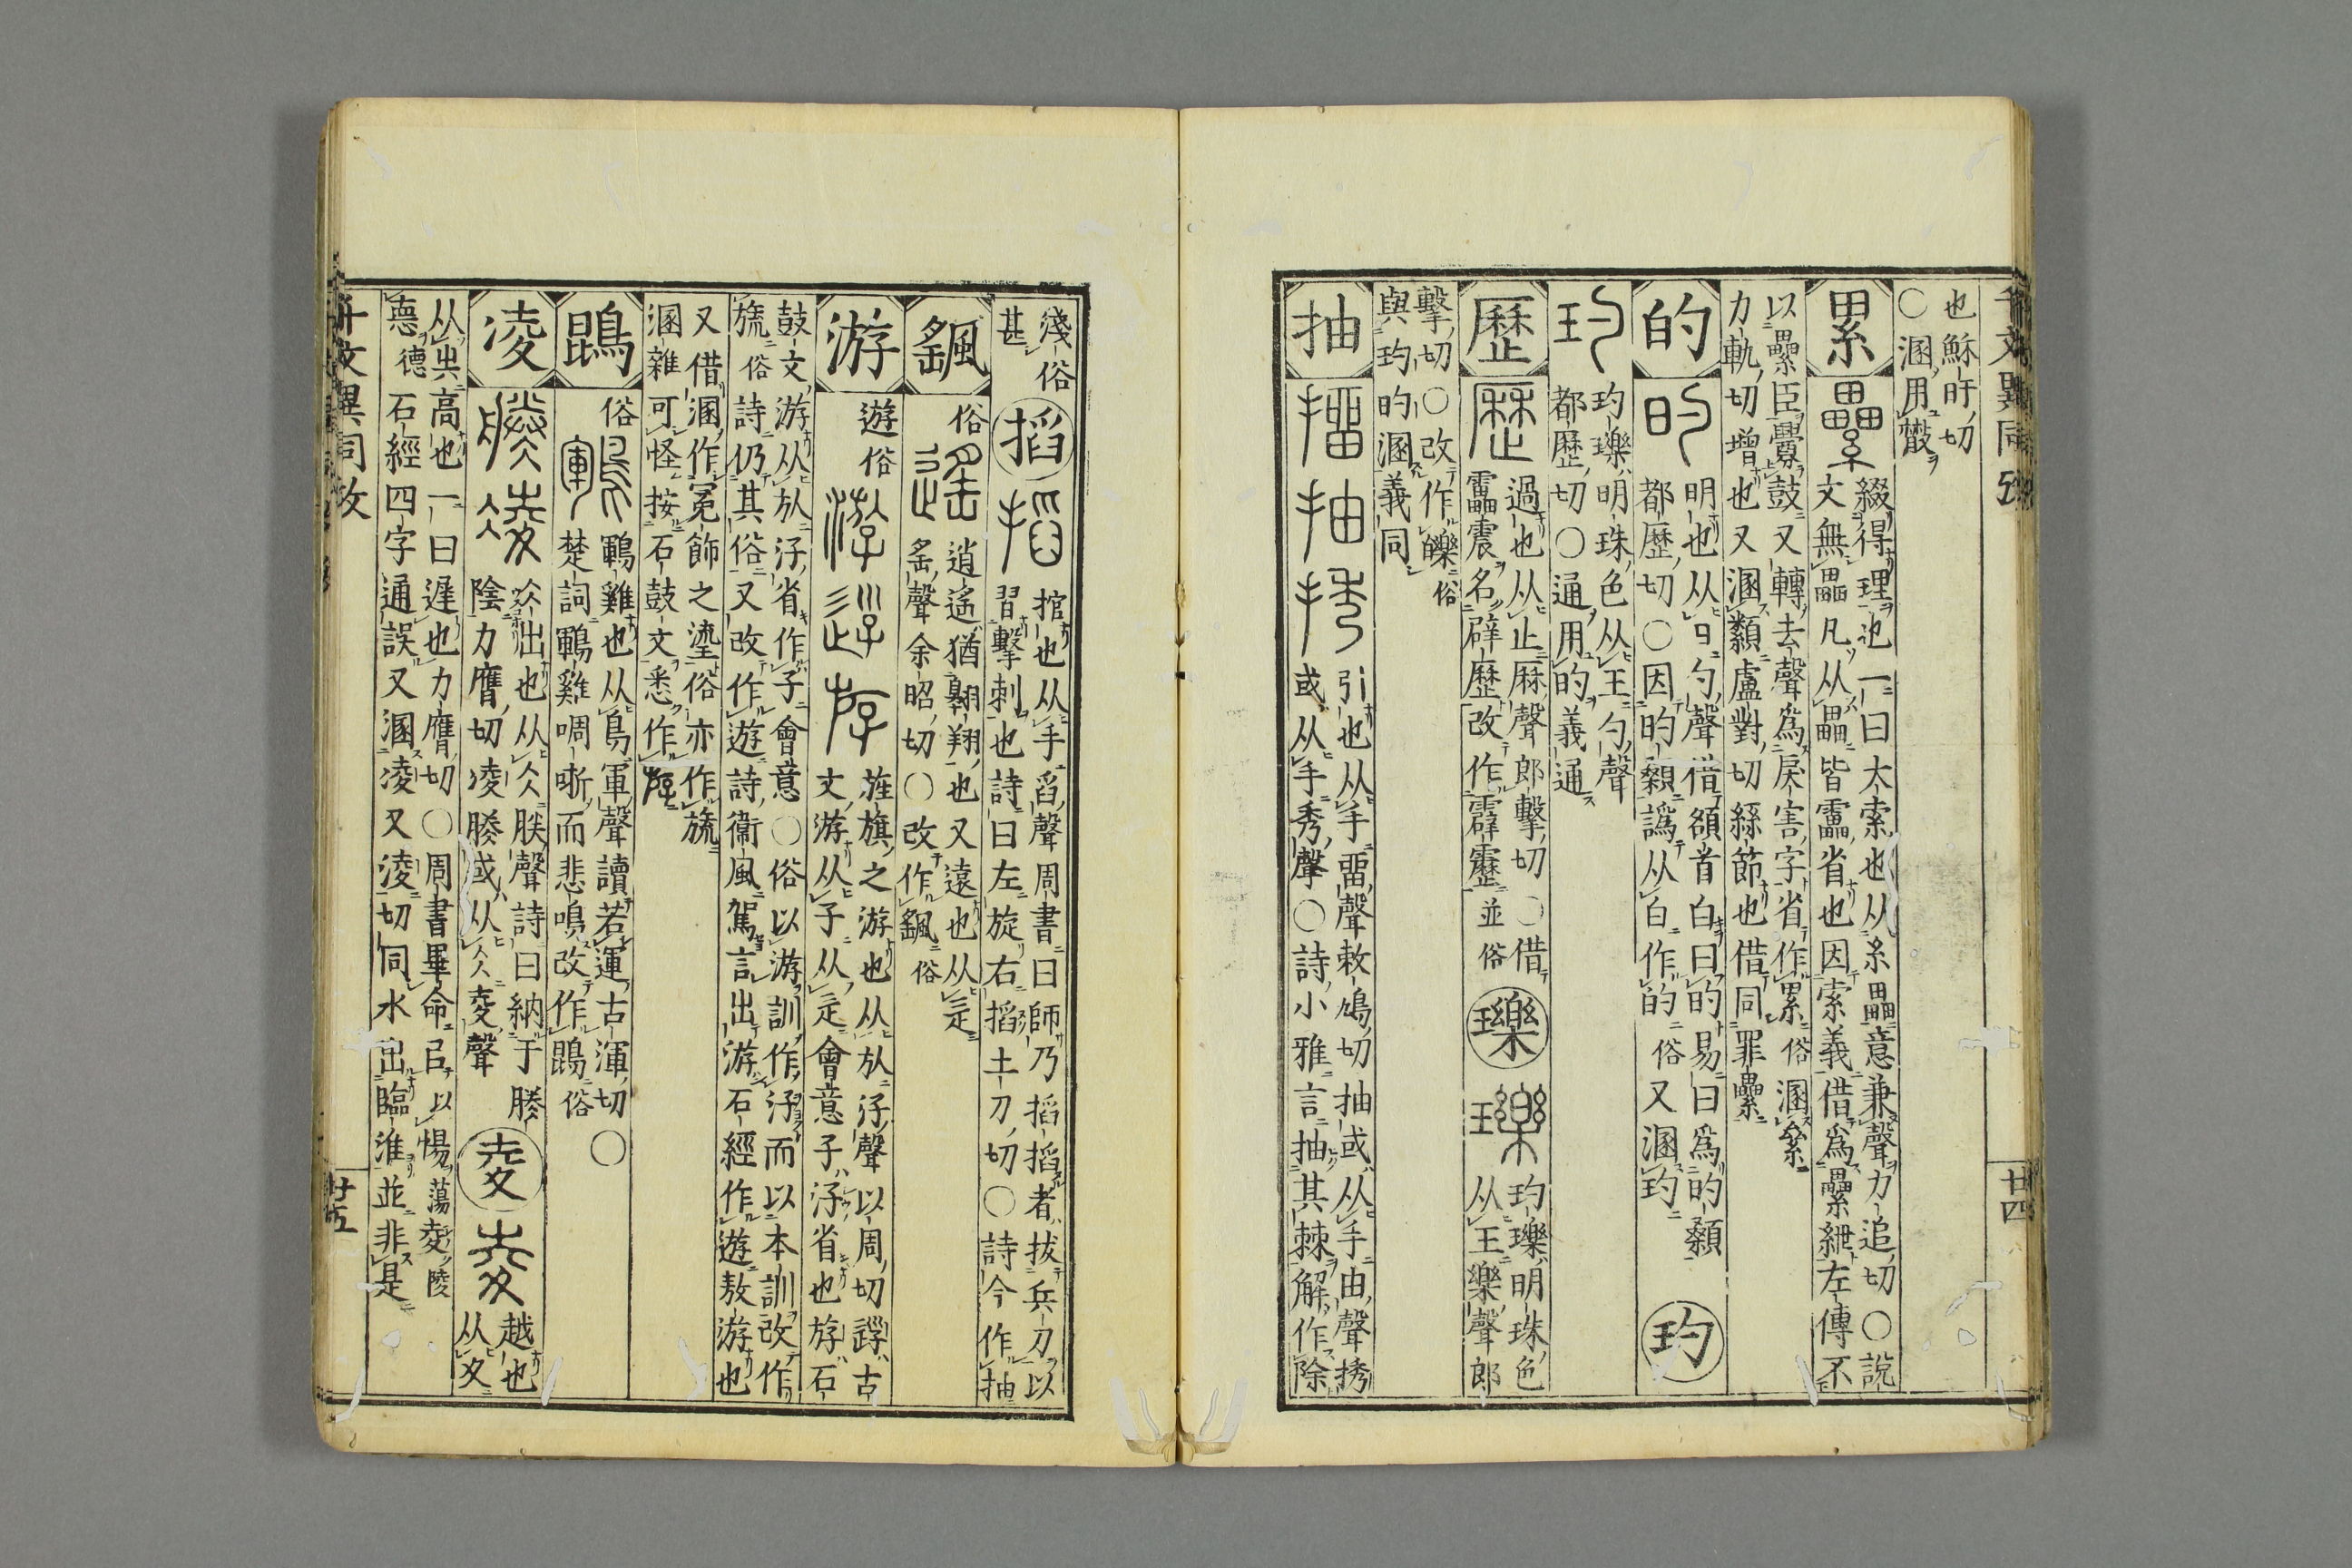 千文異同攷
也穌旰切
○溷用㪚
累
綴得理也一曰大索也从糸畾意兼聲力追切○說
文無畾凡从畾皆靁省也因索義借爲纍紲左傳不
以纍臣釁鼓又轉去聲爲戾害字省作累俗溷絫
力軌切增也又溷纇盧對切絲節也借同罪纍
的
明也从日勺聲借頟首白曰的易曰爲的顙
都歷切○因旳顙譌从白作的俗又溷玓
玓
玓瓅明珠色从王勺聲
都歷切○通用的義通
歷
過也从止厤聲郎擊切○借
靁震名辟歷改作霹靂並俗
瓅
玓瓅明珠色
从王樂聲郎
擊切○改作皪俗
與玓旳溷義同
抽
㩅 抽 㨨
引也从手畱聲敕鳩切抽或从手由聲㨨
或从手秀聲○詩小雅言抽其棘解作除
淺俗
甚
搯
搯
捾也从手舀聲周書曰師乃搯搯者拔兵刀以
習擊刺也詩曰左旋右搯土刀切○詩今作抽
颻
俗
逍遙猶翱翔也又遠也从辵
䍃聲余昭切○改作颻俗
游
遊俗
旌旗之游也从㫃汓聲以周切𨒰古
文游从子从辵會意子汓省也斿石
鼓文游从㫃汓省作子會意○俗以游訓作汓而以本訓改作
旒俗詩仍其俗又改作遊詩衞風駕言出游石經作遊敖游也
又借溷作冕飾之塗俗亦作旒
溷雜可怪按石鼓文悉作斿
鵾
俗
鶤
鶤雞也从鳥軍聲讀若運古渾切○
楚詞鶤雞啁哳而悲鳴改作鵾俗
凌
仌出也从仌朕聲詩曰納于𦩎
陰力膺切凌𦩎或从仌夌聲
夌
越也
从夊
从𡴆高也一曰遟也力膺切○周書畢命以㑥蕩夌陵
悳德石經四字通誤又溷凌又淩切同水出臨淮並非是
千文異同攷
廿四
廿五